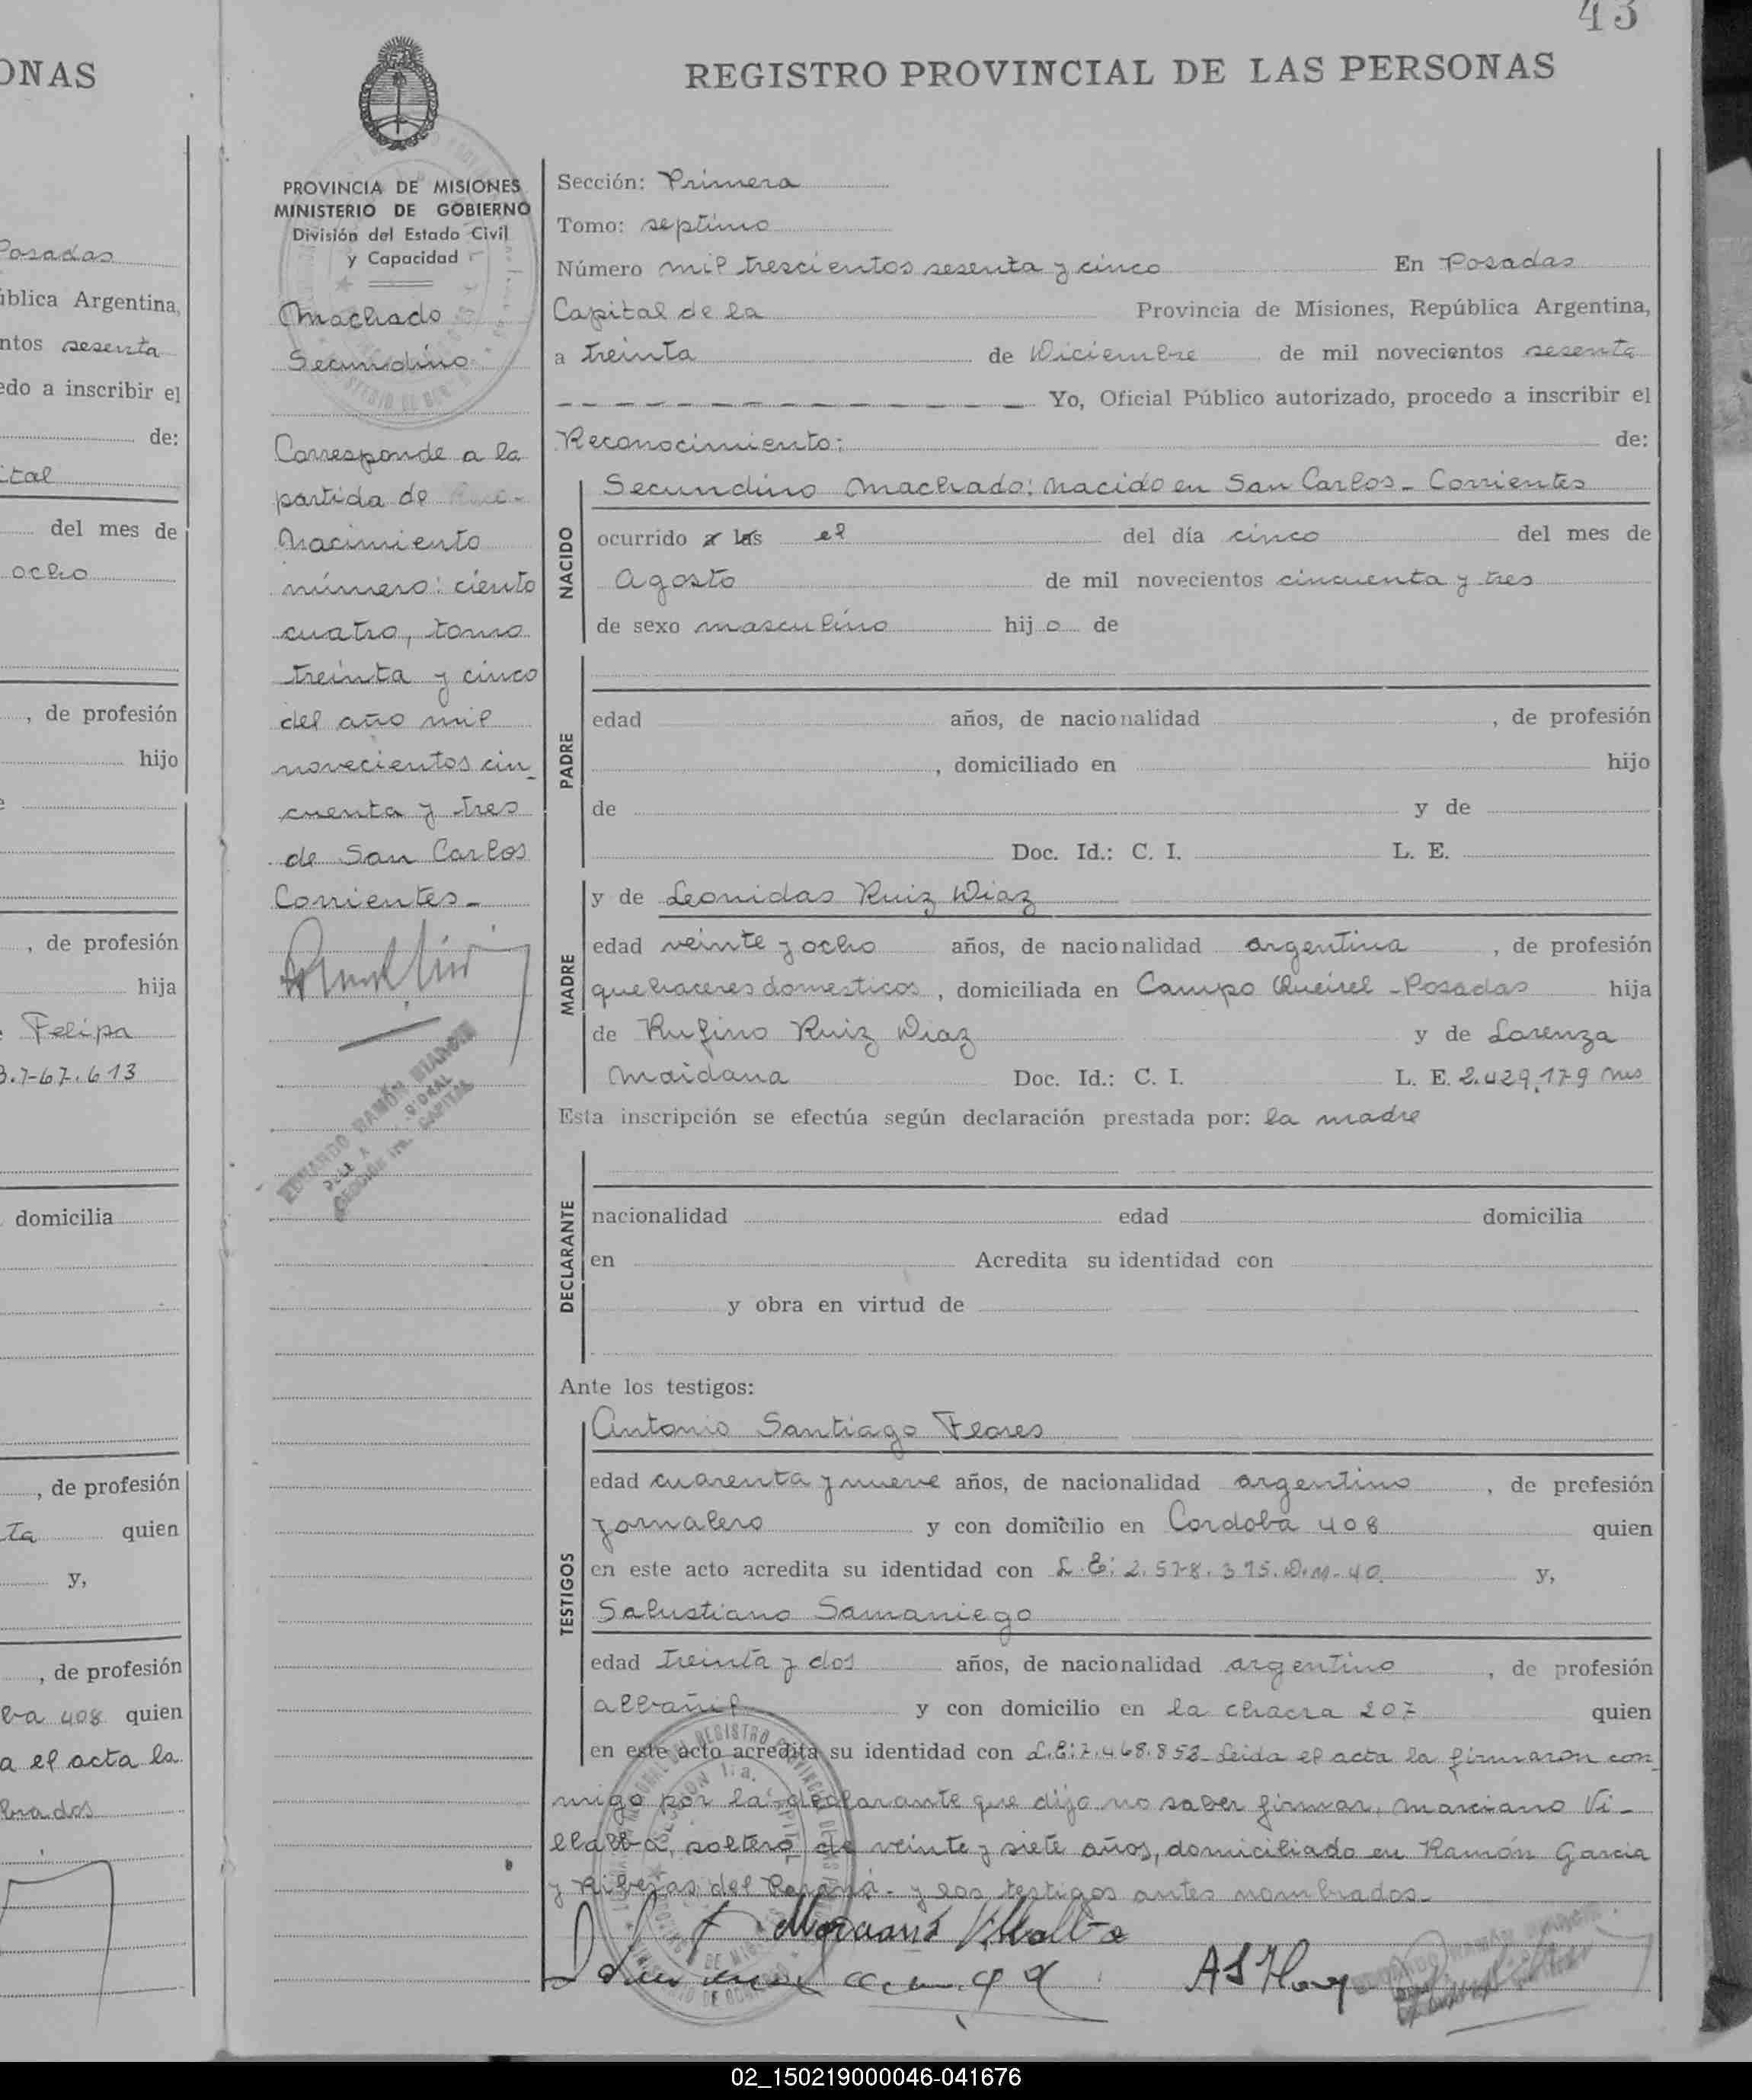 43
ONAS
REGISTRO PROVINCIAL DE LAS PERSONAS
PROVINCIA DE MISIONES
MINISTERIO DE GOBIERNO
División del Estado Civil
y Capacidad
Machado
Secundino
Corresponde a la
partida de
Nacimiento
número: ciento
cuatro, tomo
treinta y cinco
del año mil
novecientos cin_
cuenta y tres
de San Carlos
Corrientes_
EDUARDO RAMÓN
CAPITAL
Sección: Primera
Tomo: septimo
Número mil trescientos sesenta y cinco En Posadas
Capital de la Provincia de Misiones, República Argentina,
a treinta de Diciembre de mil novecientos sesenta
Yo, Oficial Público autorizado, procedo a inscribir el
Reconocimiento: de:
NACIDO
Secundino Machado: nacido en San Carlos - Corrientes
ocurrido a las el del día cinco del mes de
Agosto de mil novecientos cincuenta y tres
de sexo masculino hij o de
PADRE
edad años, de nacionalidad , de profesión
, domiciliado en hijo
de y de
Doc. Id.: C. I. L. E.
MADRE
y de Leonidas Ruiz Diaz
edad veinte y ocho años, de nacionalidad argentina , de profesión
quehaceres domesticos , domiciliada en Campo Queirel - Posadas hija
de Rufino Ruiz Diaz y de Lorenza
Maidana Doc. Id.: C. I. L. E. 2.429.179 Mis
Esta inscripción se efectúa según declaración prestada por: la madre
DECLARANTE
nacionalidad edad domicilia
en Acredita su identidad con
y obra en virtud de
Ante los testigos:
TESTIGOS
Antonio Santiago Flores
edad cuarenta y nueve años, de nacionalidad argentino , de profesión
jornalero y con domicilio en Cordoba 408 quien
en este acto acredita su identidad con L.E: 2.578.395.D.M.40. y,
Salustiano Samaniego
edad treinta y dos años, de nacionalidad argentino , de profesión
albañil y con domicilio en la chacra 207 quien
en este acto acredita su identidad con L.E: 7.468.852_Leida el acta la firmaron con_
migo por la declarante que dijo no saber firmar, Marciano Vi_
llalba, soltero de veinte y siete años, domiciliado en Ramón Garcia
y Riberas del Paraná. y los testigos antes nombrados_
Marciano Villalba
Posadas
ública Argentina,
ntos sesenta
edo a inscribir el
de:
ital
del mes de
ocho
, de profesión
hijo
, de profesión
hija
Felipa
3.767.613
domicilia
, de profesión
ta quien
y,
, de profesión
ba 408 quien
a el acta la
brados
02_150219000046-041676